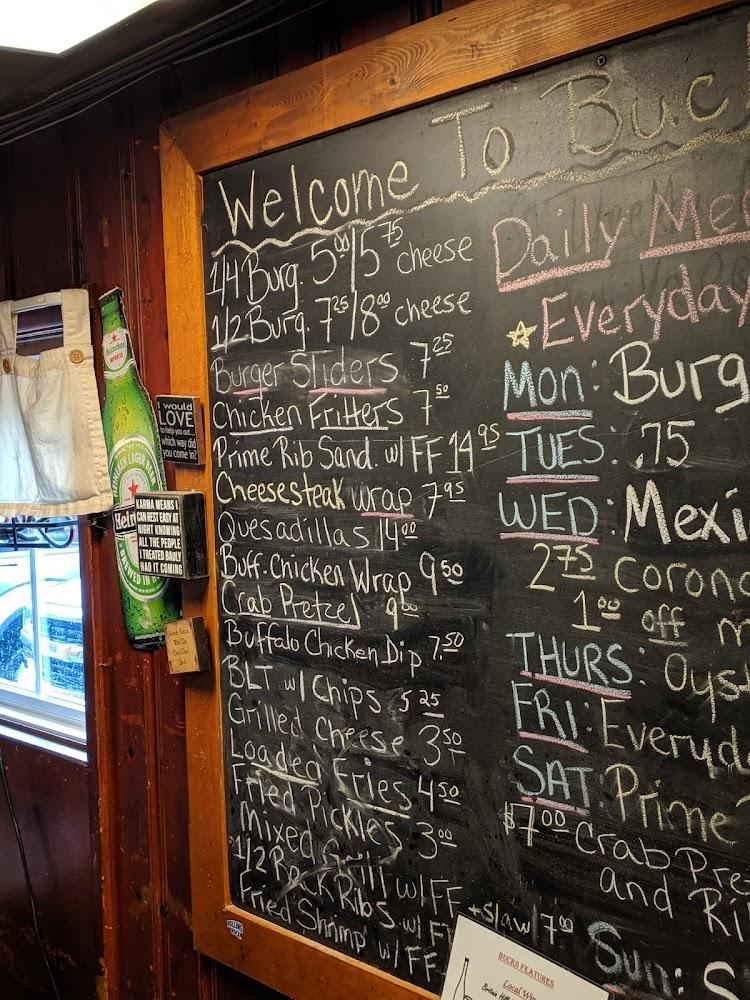 Welcome To Buc
1/4 Burg. 5.00/5.75 cheese
1/2 Burg. 7.25/8.00 cheese
Burger Sliders 7.25
Chicken Fritters 7.50
Prime Rib Sand. w/ FF 14.95
Cheesesteak wrap 7.95
Quesadillas 14.00
Buff. Chicken Wrap 9.50
Crab Pretzel 9.00
Buffalo Chicken Dip 7.50
BLT w/ Chips 5.25
Grilled Cheese 3.50
Loaded Fries 4.50
Fried Pickles 3.00
Mixed Grill w/ FF
1/2 Rack Ribs w/ FF
Fried Shrimp w/ FF
+ Slaw/ 7.00
Daily Me
Everyday
Mon: Burg
TUES: .75
WED: Mexi
2.75 Coron
1.00 off m
THURS: Oys
FRI: Everyd
SAT: Prime
$7.00 Crab Pre
and Ri
Sun: S
I would
LOVE
to help you out...
which way did
you come in?
KARMA MEANS I
CAN REST EASY AT
NIGHT KNOWING
ALL THE PEOPLE
I TREATED BADLY
HAD IT COMING
Heineken
LAGER BEER
Hein
BREWED IN H
BUCKS FEATURES
Local Wi